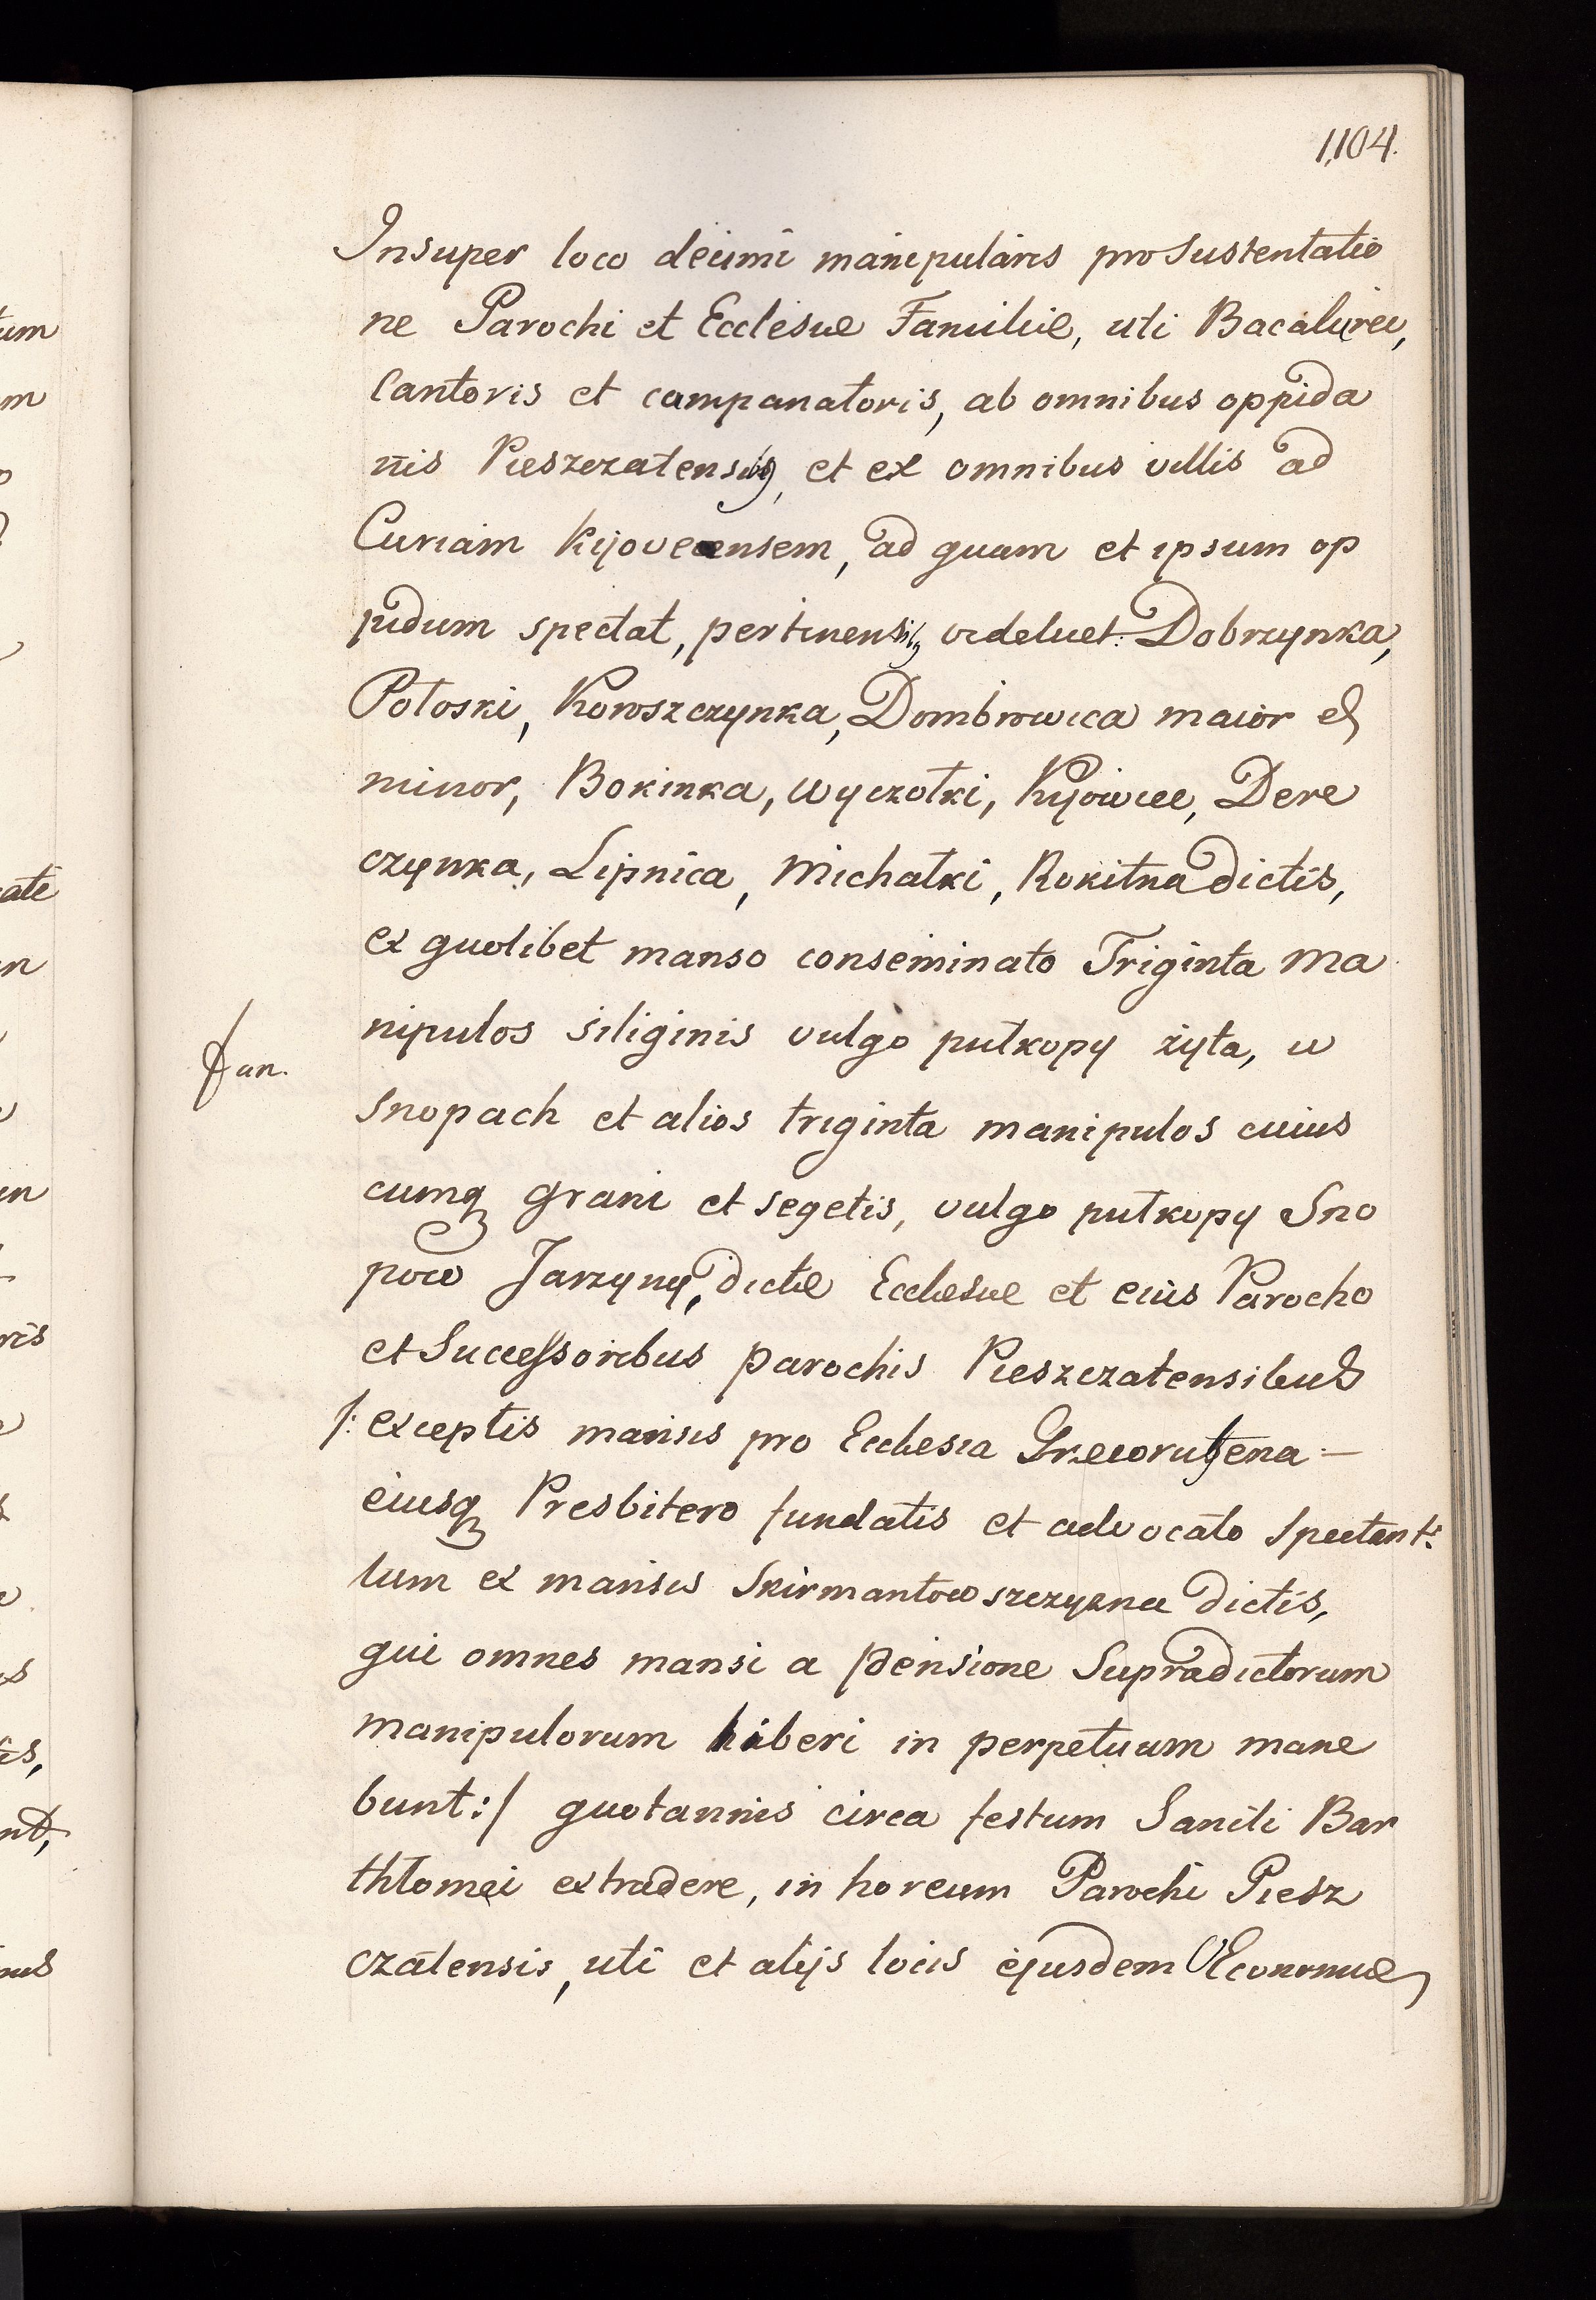 1,104.
Insuper loco decimi manipularis pro Sustentatio
ne Parochi et Ecclesiæ Familiæ, uti Bacalurei,
Cantoris et campanatoris, ab omnibus oppida
nis Pieszczatensibq, et ex omnibus villis ad
Curiam Kijovecensem, ad quam et ipsum op
pidum spectat, pertinensibq videlicet: Dobrzynka,
Połoski, Koroszczynka, Dombrowica maior et
minor, Bokinka, Wyczołki, Kyiowiec, Dere
czynka, Lipnica, Michałki, Rokitna dictis,
ex quolibet manso conseminato Triginta Ma
nipulos siliginis vulgo pułkopy żyta, w
Jun.
snopach et alios triginta manipulos cuius
cumq grani et segetis, vulgo pułkopy Sno
pow Jarzyny, dictæ Ecclesiæ et eius Parocho
et Successoribus parochis Pieszczatensibus
/: exceptis mansis pro Ecclesia Græcorutena –
eiusq Presbitero fundatis et advocato spectant:
tum ex mansis Skirmantowszczyzna dictis,
qui omnes mansi a pensione Supradictorum
manipulorum liberi in perpetuum mane
bunt:/ quotannis circa festum Sancti Bar
thłomei extradere, in horeum Parochi Piesz
czatensis, uti et alijs locis ejusdem Œconomiæ